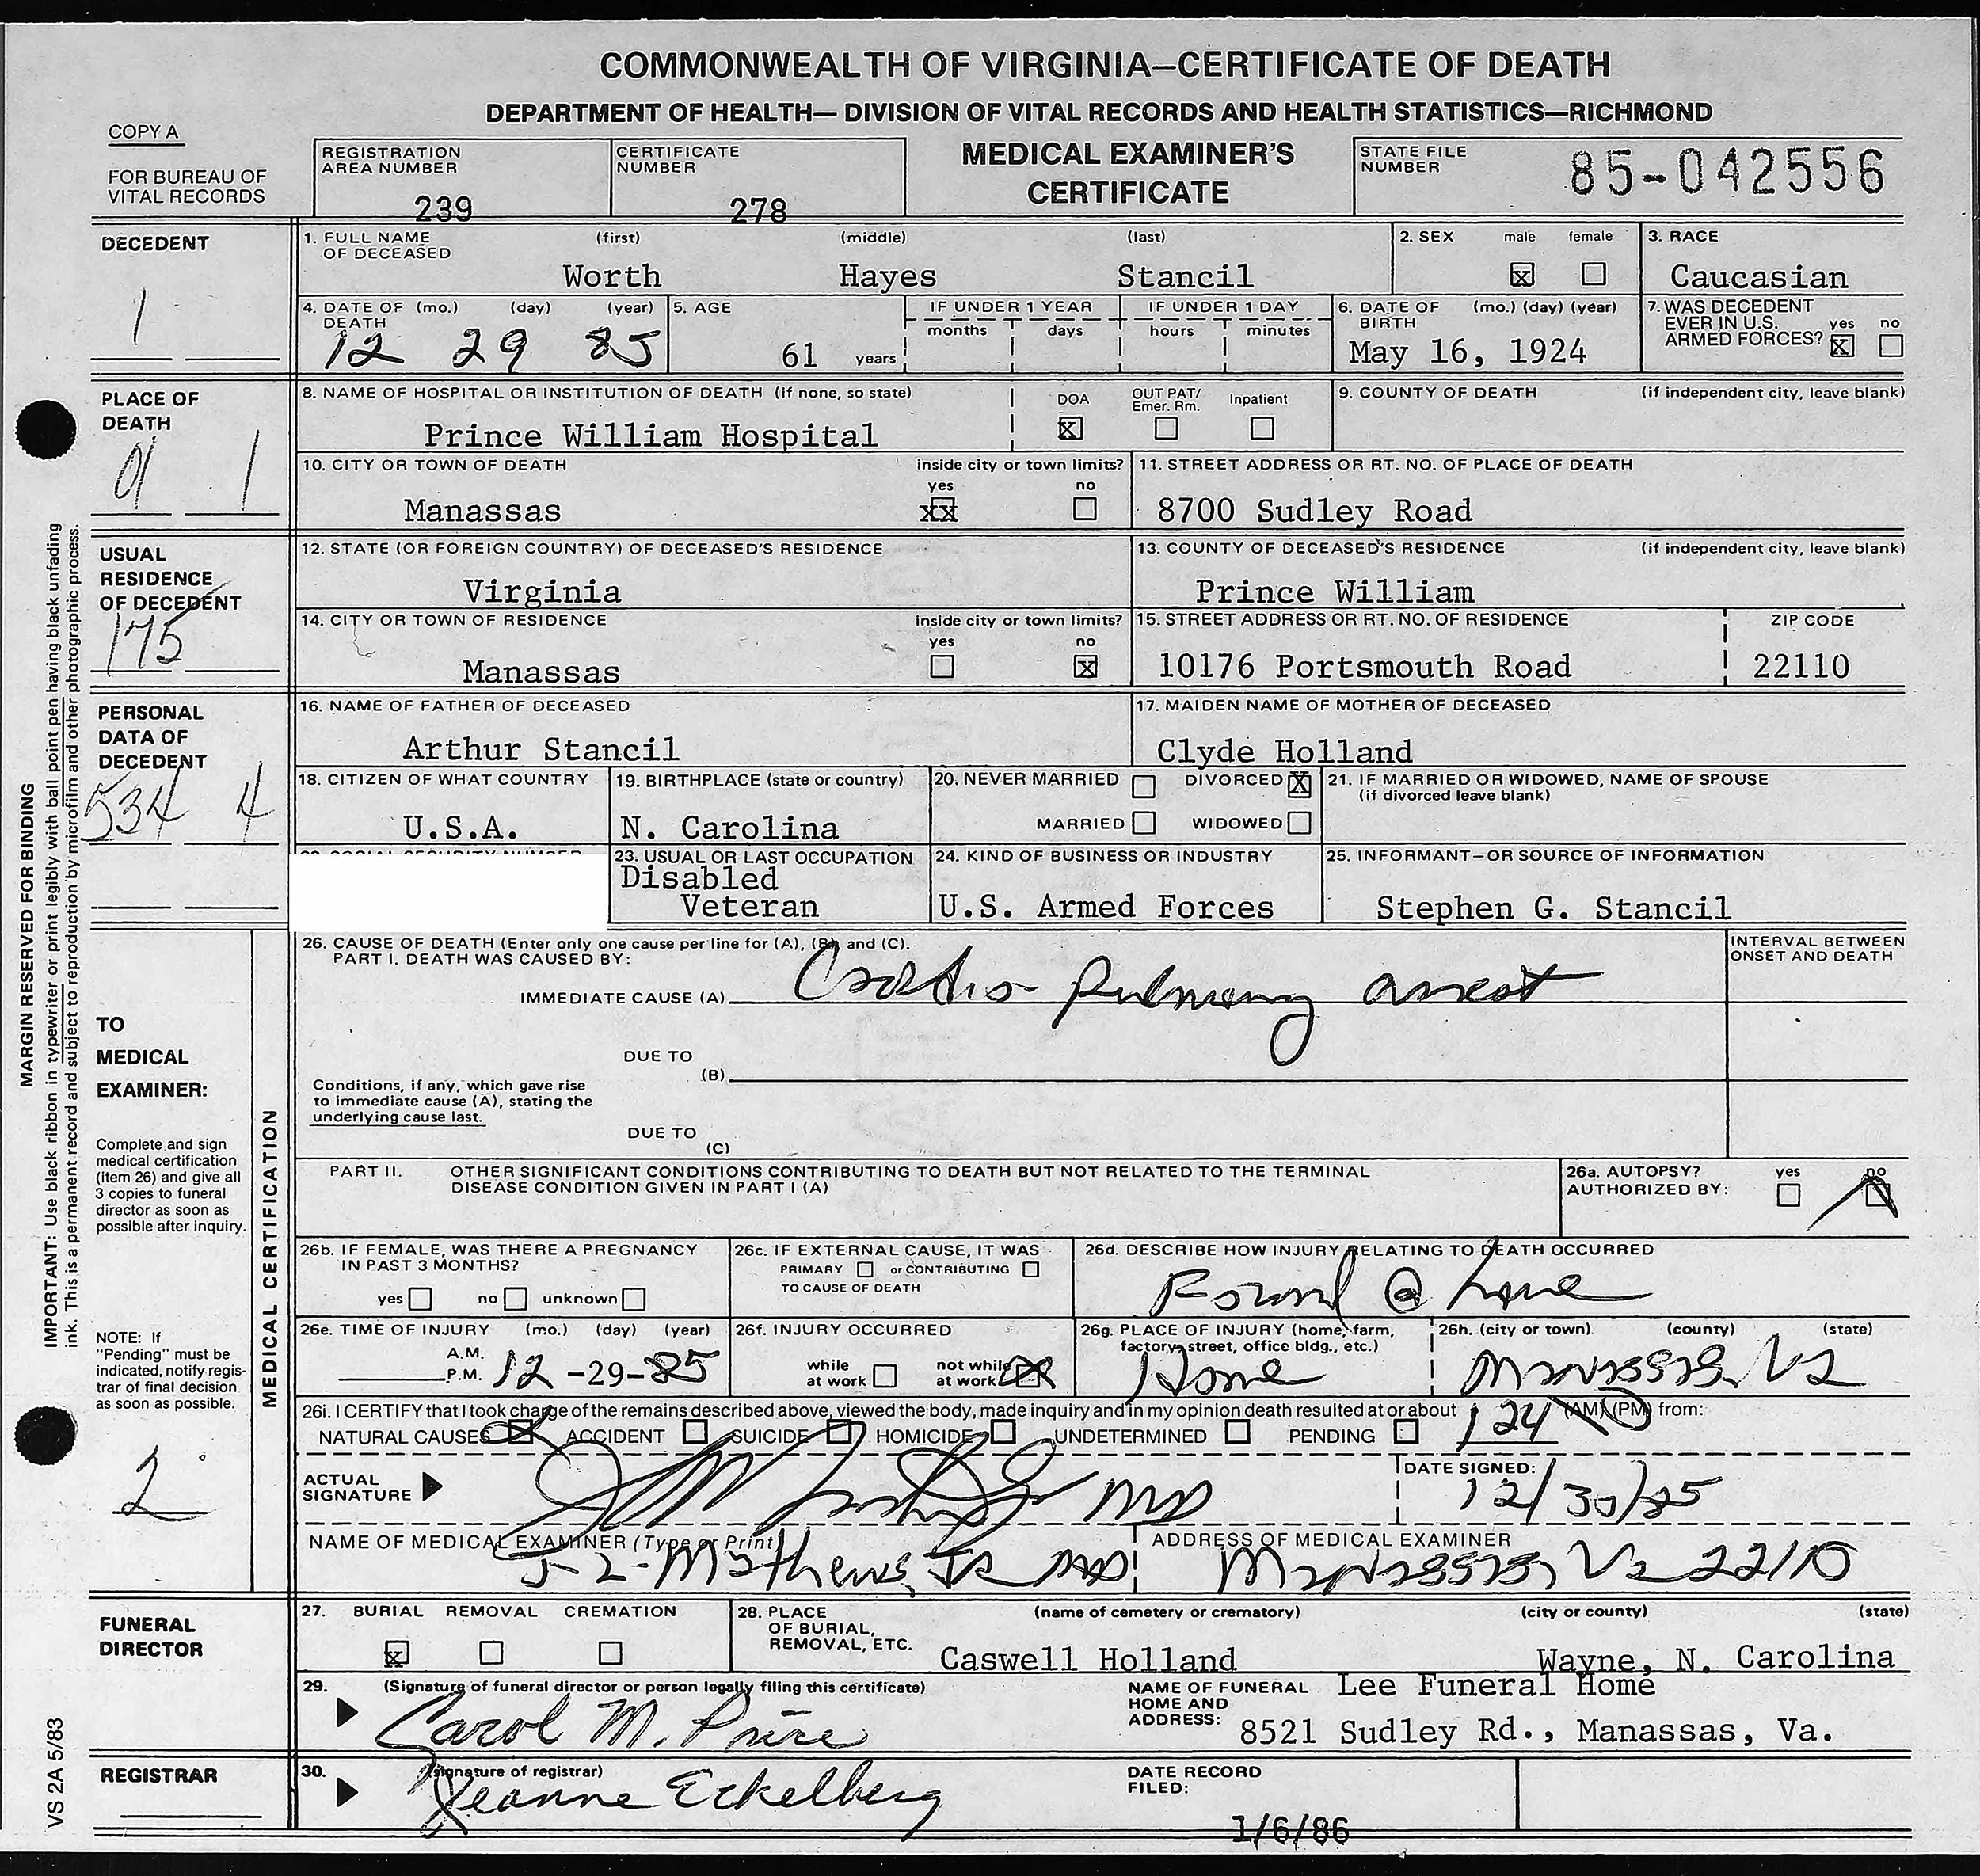 COMMONWEALTH OF VIRGINIA—CERTIFICATE OF DEATH
DEPARTMENT OF HEALTH— DIVISION OF VITAL RECORDS AND HEALTH STATISTICS—RICHMOND
COPY A
FOR BUREAU OF VITAL RECORDS
REGISTRATION AREA NUMBER 239
CERTIFICATE NUMBER 278
MEDICAL EXAMINER'S CERTIFICATE
STATE FILE NUMBER 85-042556
DECEDENT
1
1. FULL NAME OF DECEASED (first) (middle) (last)
Worth Hayes Stancil
2. SEX male female
x
3. RACE
Caucasian
4. DATE OF DEATH (mo.) (day) (year)
12 29 85
5. AGE
61 years
IF UNDER 1 YEAR
months days
IF UNDER 1 DAY
hours minutes
6. DATE OF BIRTH (mo.) (day) (year)
May 16, 1924
7. WAS DECEDENT EVER IN U.S. ARMED FORCES? yes no
x
PLACE OF DEATH
9 1
8. NAME OF HOSPITAL OR INSTITUTION OF DEATH (if none, so state)
Prince William Hospital
DOA OUT PAT/ Emer. Rm. Inpatient
x
9. COUNTY OF DEATH (if independent city, leave blank)
10. CITY OR TOWN OF DEATH inside city or town limits?
yes no
Manassas xx
11. STREET ADDRESS OR RT. NO. OF PLACE OF DEATH
8700 Sudley Road
USUAL RESIDENCE OF DECEDENT
175
12. STATE (OR FOREIGN COUNTRY) OF DECEASED'S RESIDENCE
Virginia
13. COUNTY OF DECEASED'S RESIDENCE (if independent city, leave blank)
Prince William
14. CITY OR TOWN OF RESIDENCE inside city or town limits?
yes no
Manassas x
15. STREET ADDRESS OR RT. NO. OF RESIDENCE ZIP CODE
10176 Portsmouth Road 22110
PERSONAL DATA OF DECEDENT
534 4
16. NAME OF FATHER OF DECEASED
Arthur Stancil
17. MAIDEN NAME OF MOTHER OF DECEASED
Clyde Holland
18. CITIZEN OF WHAT COUNTRY
U.S.A.
19. BIRTHPLACE (state or country)
N. Carolina
20. NEVER MARRIED DIVORCED X
MARRIED WIDOWED
21. IF MARRIED OR WIDOWED, NAME OF SPOUSE (if divorced leave blank)
23. USUAL OR LAST OCCUPATION
Disabled
Veteran
24. KIND OF BUSINESS OR INDUSTRY
U.S. Armed Forces
25. INFORMANT—OR SOURCE OF INFORMATION
Stephen G. Stancil
MARGIN RESERVED FOR BINDING
IMPORTANT: Use black ribbon in typewriter or print legibly with ball point pen having black unfading
ink. This is a permanent record and subject to reproduction by microfilm and other photographic process.
TO MEDICAL EXAMINER:
Complete and sign
medical certification
(item 26) and give all
3 copies to funeral
director as soon as
possible after inquiry.
NOTE: If
"Pending" must be
indicated, notify regis-
trar of final decision
as soon as possible.
2
MEDICAL CERTIFICATION
26. CAUSE OF DEATH (Enter only one cause per line for (A), (B) and (C).
PART I. DEATH WAS CAUSED BY:
INTERVAL BETWEEN ONSET AND DEATH
IMMEDIATE CAUSE (A) Cardio pulmonary arrest
DUE TO (B)
Conditions, if any, which gave rise
to immediate cause (A), stating the
underlying cause last.
DUE TO (C)
PART II. OTHER SIGNIFICANT CONDITIONS CONTRIBUTING TO DEATH BUT NOT RELATED TO THE TERMINAL
DISEASE CONDITION GIVEN IN PART I (A)
26a. AUTOPSY? yes no
AUTHORIZED BY:
26b. IF FEMALE, WAS THERE A PREGNANCY IN PAST 3 MONTHS?
yes no unknown
26c. IF EXTERNAL CAUSE, IT WAS
PRIMARY or CONTRIBUTING
TO CAUSE OF DEATH
26d. DESCRIBE HOW INJURY RELATING TO DEATH OCCURRED
Found @ home
26e. TIME OF INJURY (mo.) (day) (year)
A.M.
P.M. 12-29-85
26f. INJURY OCCURRED
while at work not while at work
26g. PLACE OF INJURY (home, farm, factory, street, office bldg., etc.)
Home
26h. (city or town) (county) (state)
Manassas, Va
26i. I CERTIFY that I took charge of the remains described above, viewed the body, made inquiry and in my opinion death resulted at or about 124 (AM) (PM) from:
NATURAL CAUSES ACCIDENT SUICIDE HOMICIDE UNDETERMINED PENDING
ACTUAL SIGNATURE MD
DATE SIGNED: 12/30/85
NAME OF MEDICAL EXAMINER (Type or Print)
J-L-Mathews, Jr MD
ADDRESS OF MEDICAL EXAMINER
Manassas, Va 22110
FUNERAL DIRECTOR
27. BURIAL REMOVAL CREMATION
x
28. PLACE OF BURIAL, REMOVAL, ETC. (name of cemetery or crematory) (city or county) (state)
Caswell Holland Wayne, N. Carolina
29. (Signature of funeral director or person legally filing this certificate)
Carol M. Price
NAME OF FUNERAL HOME AND ADDRESS: Lee Funeral Home
8521 Sudley Rd., Manassas, Va.
REGISTRAR
30. (signature of registrar)
Jeanne Eckelberg
DATE RECORD FILED:
1/6/86
VS 2A 5/83